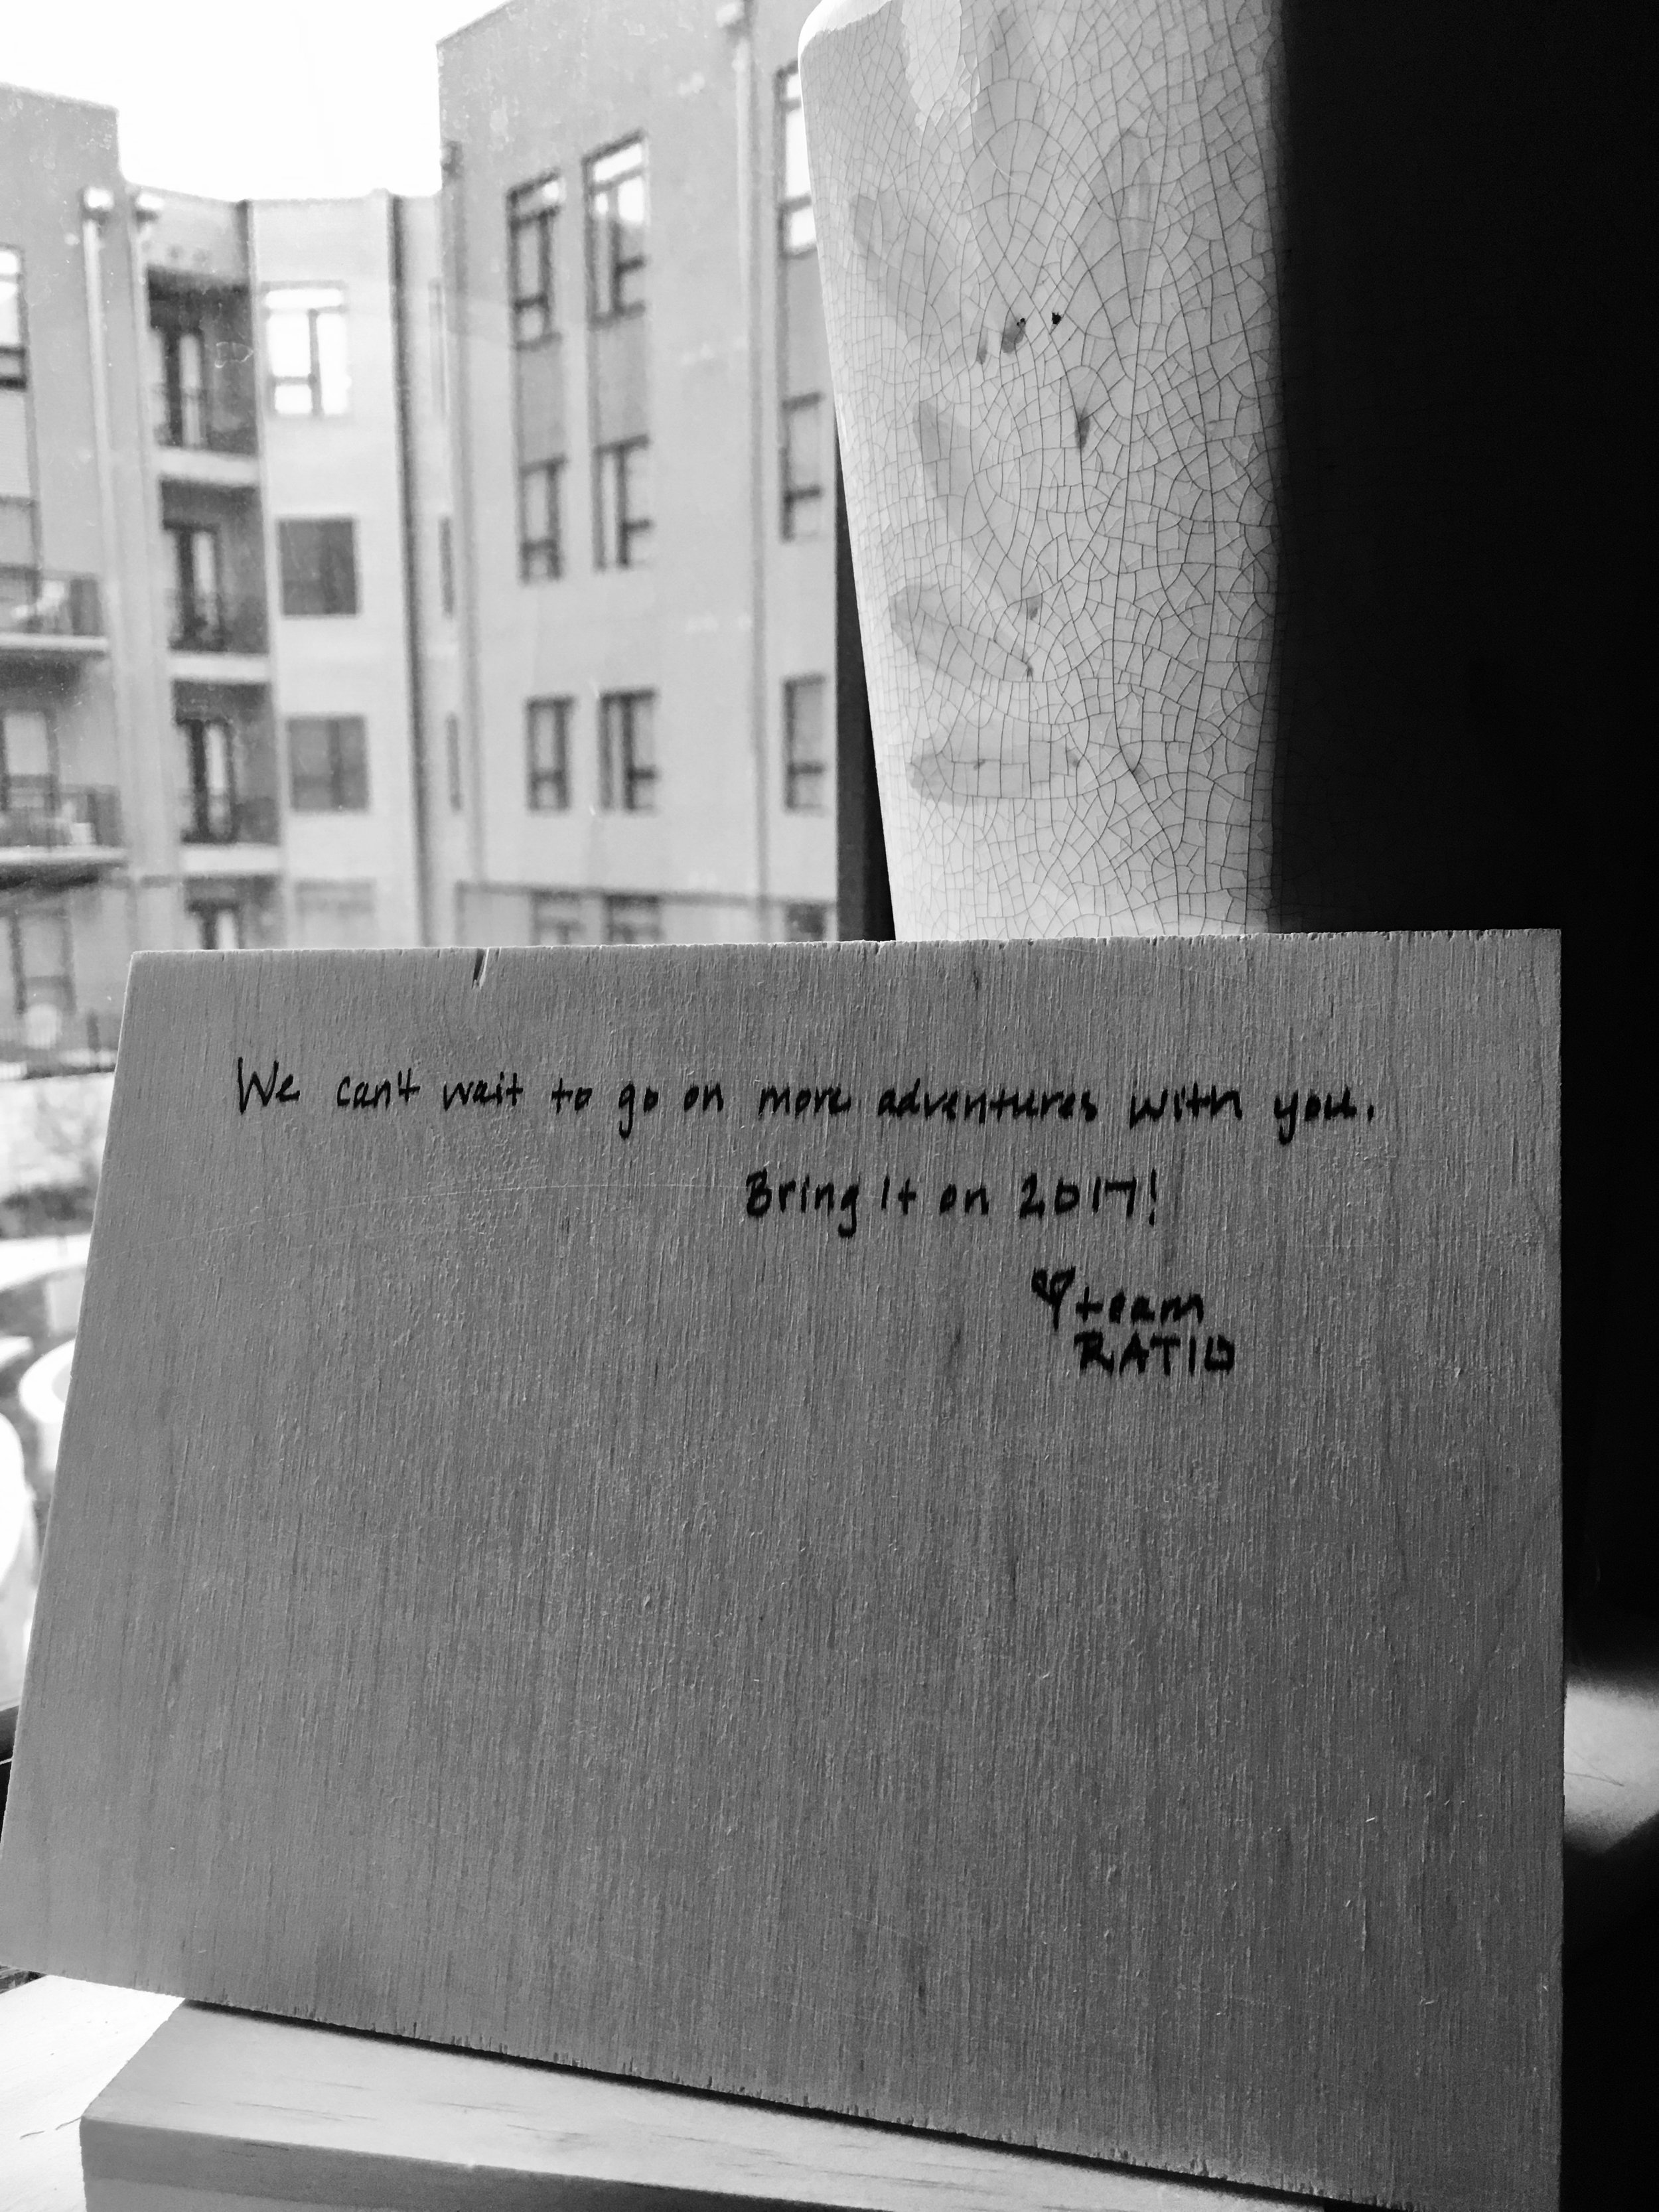 We can't wait to go on more adventures with you.
Bring it on 2017!
♥ team
RATIO